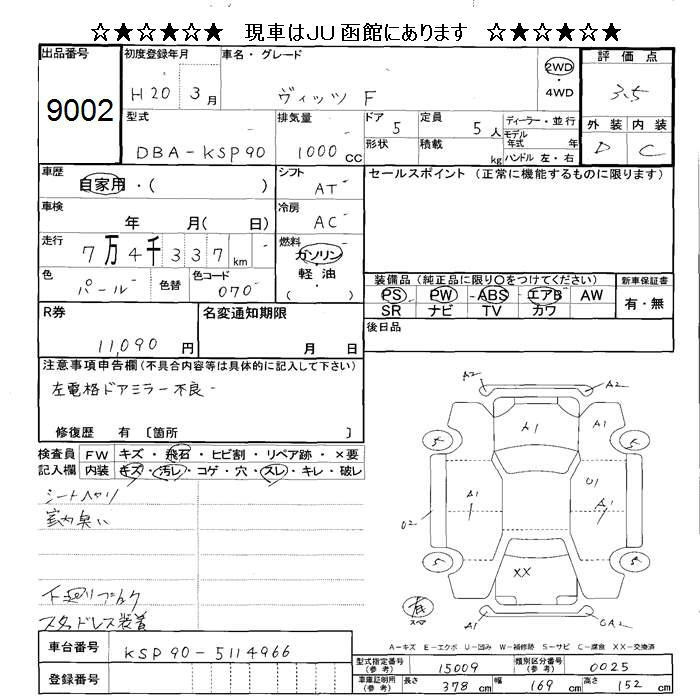 ☆★☆★☆★ 現車はJU函館にあります ☆★☆★☆★
出品番号 初度登録年月 車名・グレード 評価点
9002 H20 3月 ヴィッツ F 2WD 4WD 3.5
型式 排気量 ドア 定員 ディーラー・並行 外装 内装
5 5人 モデル年式 年
DBA-KSP90 1000cc 形状 積載 kg ハンドル 左・右 D C
車歴 自家用・( ) シフト AT セールスポイント(正常に機能するものに限ります)
車検 年 月( 日) 冷房 AC
走行 7万4千337km 燃料 ガソリン・軽油 ( )
色 パール 色替 色コード 070
装備品(純正品に限り○をつけてください) 新車保証書
PS PW ABS エアB AW 有・無
SR ナビ TV カワ
R券 11,090円 名変通知期限 月 日 後日品
注意事項申告欄(不具合内容等は具体的に記入して下さい)
左電格ドアミラー不良
修復歴 有 〔箇所 〕
検査員記入欄 FW キズ・飛石・ヒビ割・リペア跡・×要
内装 キズ・汚レ・コゲ・穴・スレ・キレ・破レ
シートヘタリ
室内臭い
下廻りブラック
スタッドレス装着
A2 A2
A1 A1
5 5
U1
A1 A1
02
5 5
XX
有 スペア
A1 A2
A-キズ E-エクボ U-凹み W-補修跡 S-サビ C-腐食 XX-交換済
車台番号 KSP90-5114966
登録番号
型式指定番号(参考) 15009 類別区分番号(参考) 0025
車庫証明用(参考) 長さ 378cm 幅 169cm 高さ 152cm